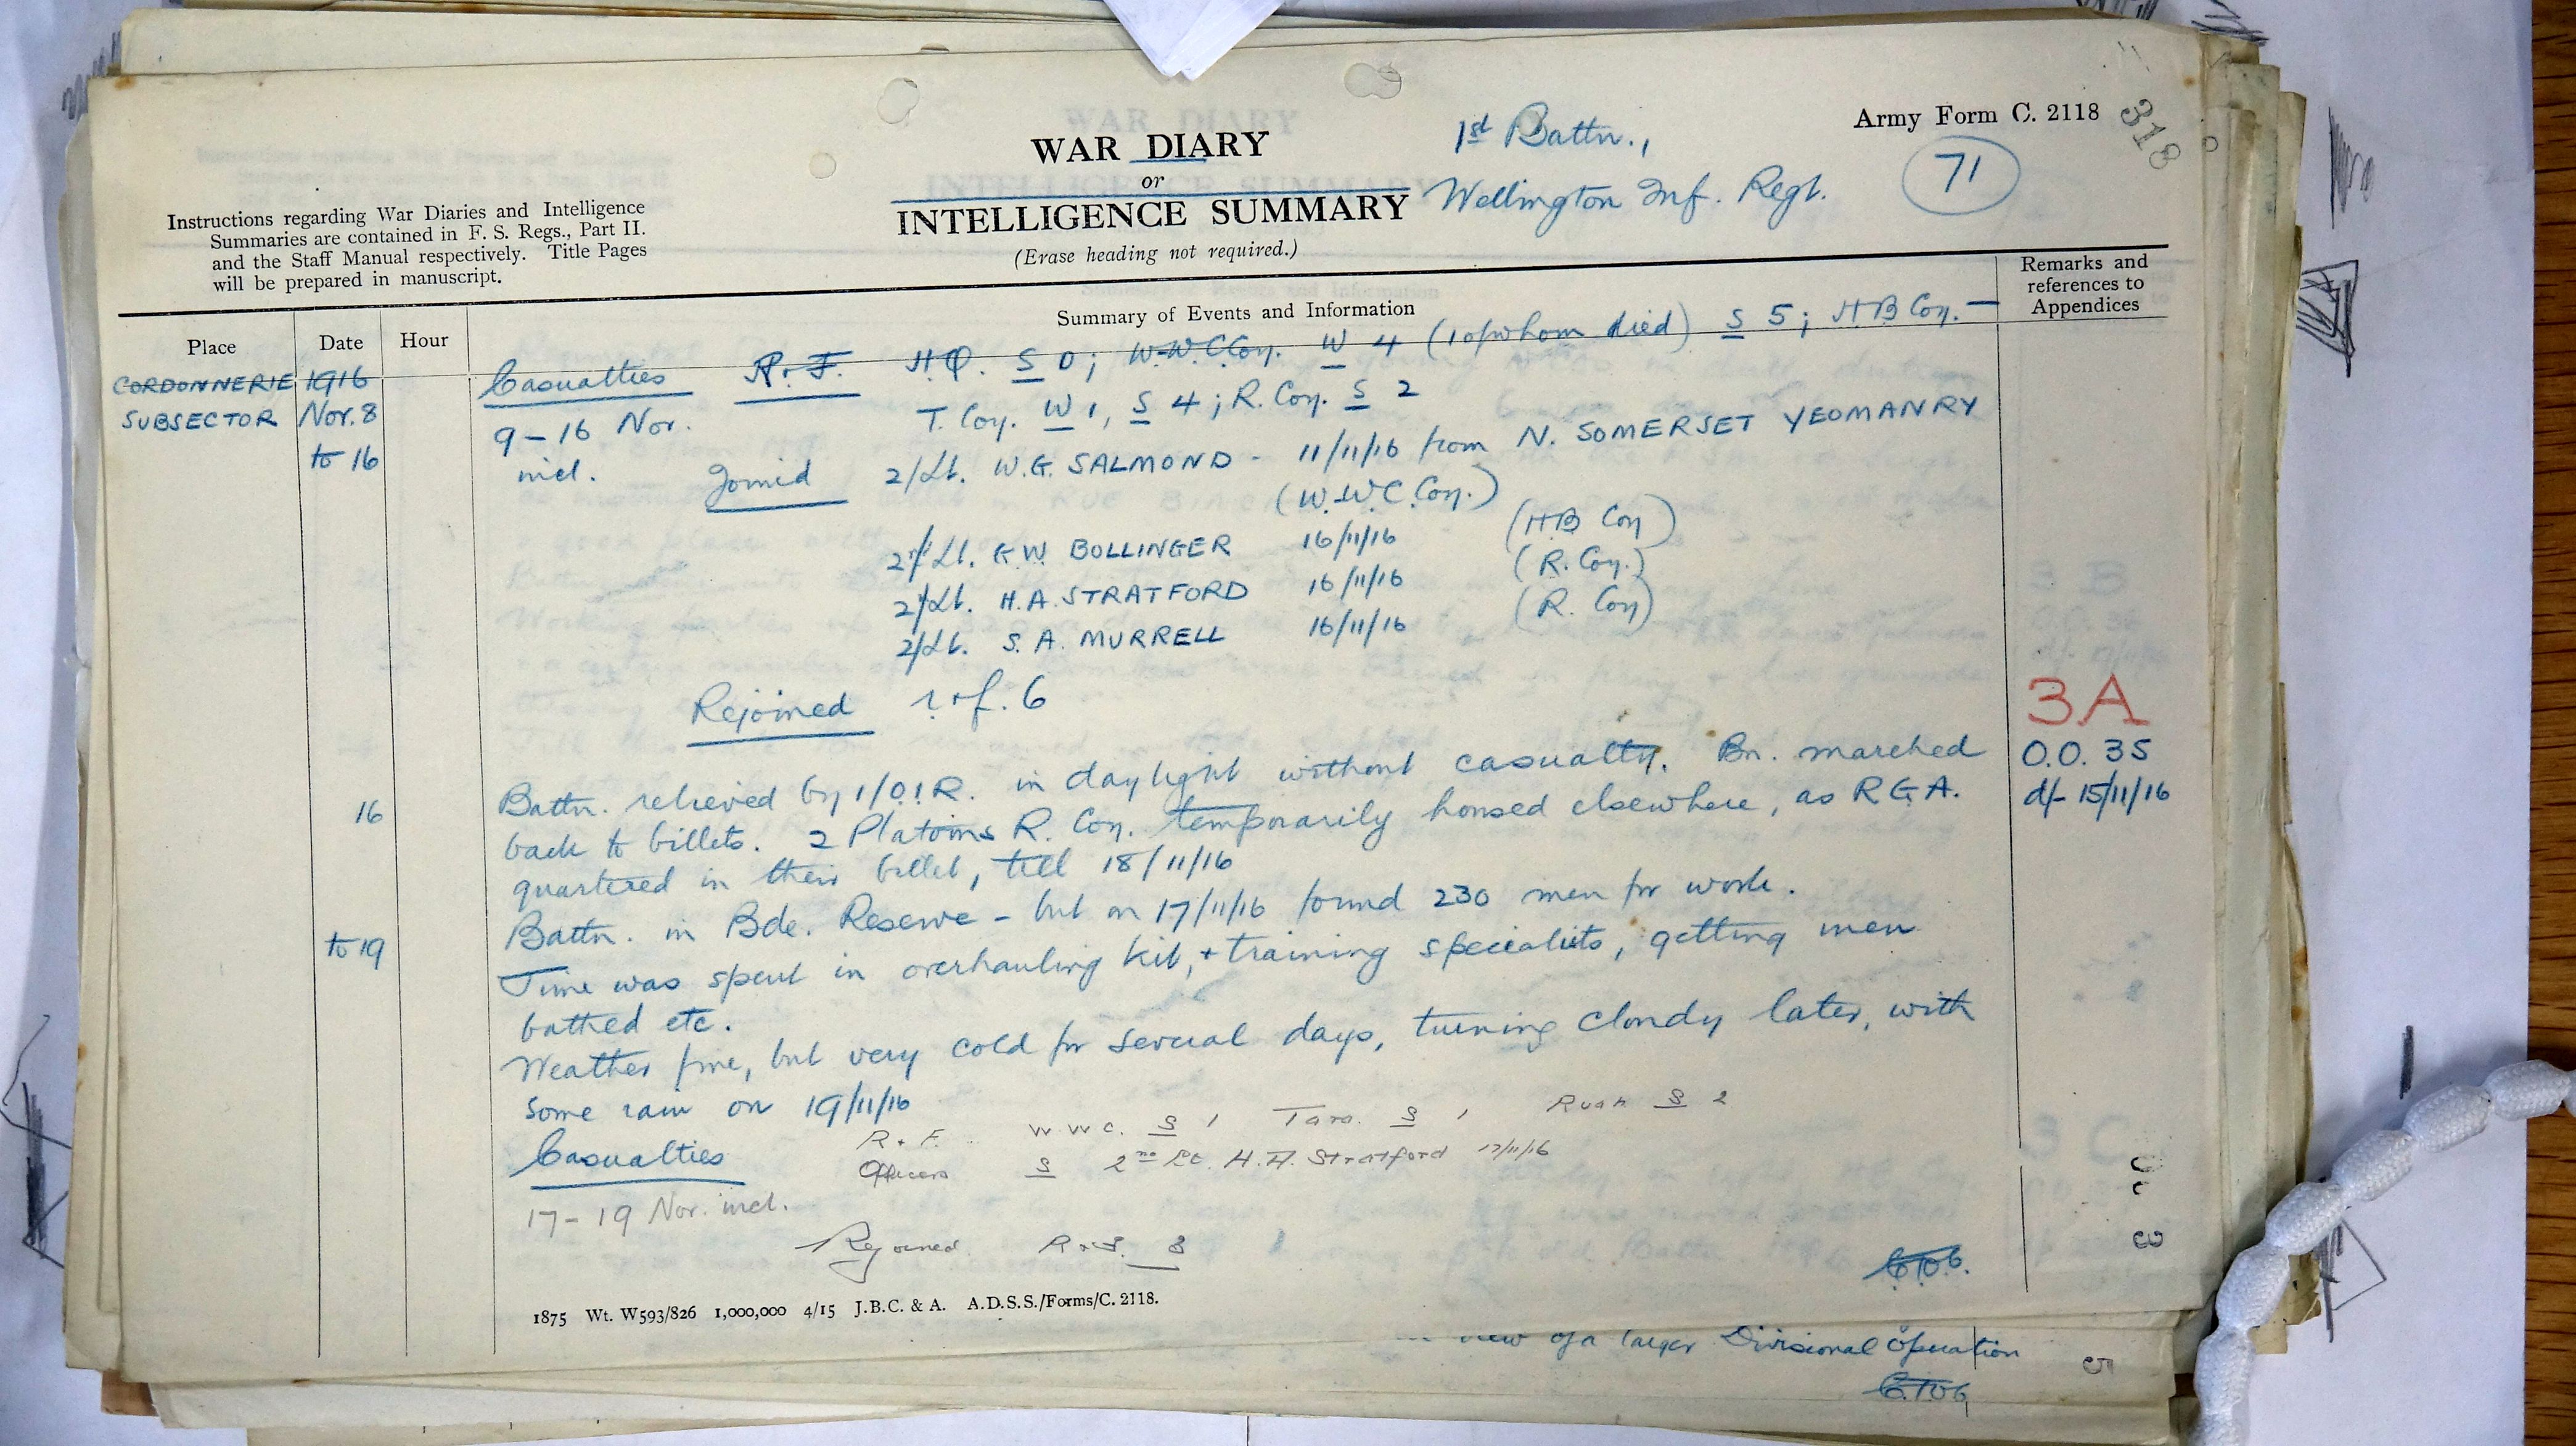 Army Form C. 2118
318
WAR DIARY
or
INTELLIGENCE SUMMARY
(Erase heading not required.)
1st Battn.,
Wellington Inf. Regt.
71
Instructions regarding War Diaries and Intelligence
Summaries are contained in F. S. Regs., Part II.
and the Staff Manual respectively. Title Pages
will be prepared in manuscript.
Place
Date
Hour
Summary of Events and Information
Remarks and
references to
Appendices
CORDONNERIE 1916
SUBSECTOR Nov. 8
to 16
Casualties R. & F. H.Q. S 0; W.W.C Coy. W 4 (1 of whom died) S 5; HB Coy. —
9-16 Nov. T. Coy. W 1, S 4; R. Coy. S 2
incl. Joined 2/Lt. W.G. SALMOND - 11/11/16 from N. SOMERSET YEOMANRY
(W.W.C. Coy.)
2/Lt. G.W. BOLLINGER 16/11/16 (HB Coy)
2/Lt. H.A. STRATFORD 16/11/16 (R. Coy.)
2/Lt. S. A. MURRELL 16/11/16 (R. Coy)
Rejoined r. & f. 6
3A
O.O. 35
d/- 15/11/16
16 Battn. relieved by 1/O.I.R. in daylight without casualty. Bn. marched
back to billets. 2 Platoons R. Coy. temporarily housed elsewhere, as R.G.A.
quartered in their billet, till 18/11/16
to 19 Battn. in Bde. Reserve - but on 17/11/16 found 230 men for work.
Time was spent in overhauling kit, + training specialists, getting men
bathed etc.
Weather fine, but very cold for several days, turning cloudy later, with
some rain on 19/11/16
Casualties R + F. W W C. S 1 Tara. S 1 Ruah S 2
Officers S 2nd Lt. H.A. Stratford 17/11/16
17-19 Nov. incl.
Rejoined R + F. 3
1875 Wt. W593/826 1,000,000 4/15 J.B.C. & A. A.D.S.S./Forms/C. 2118.
view of a larger Divisional Operation